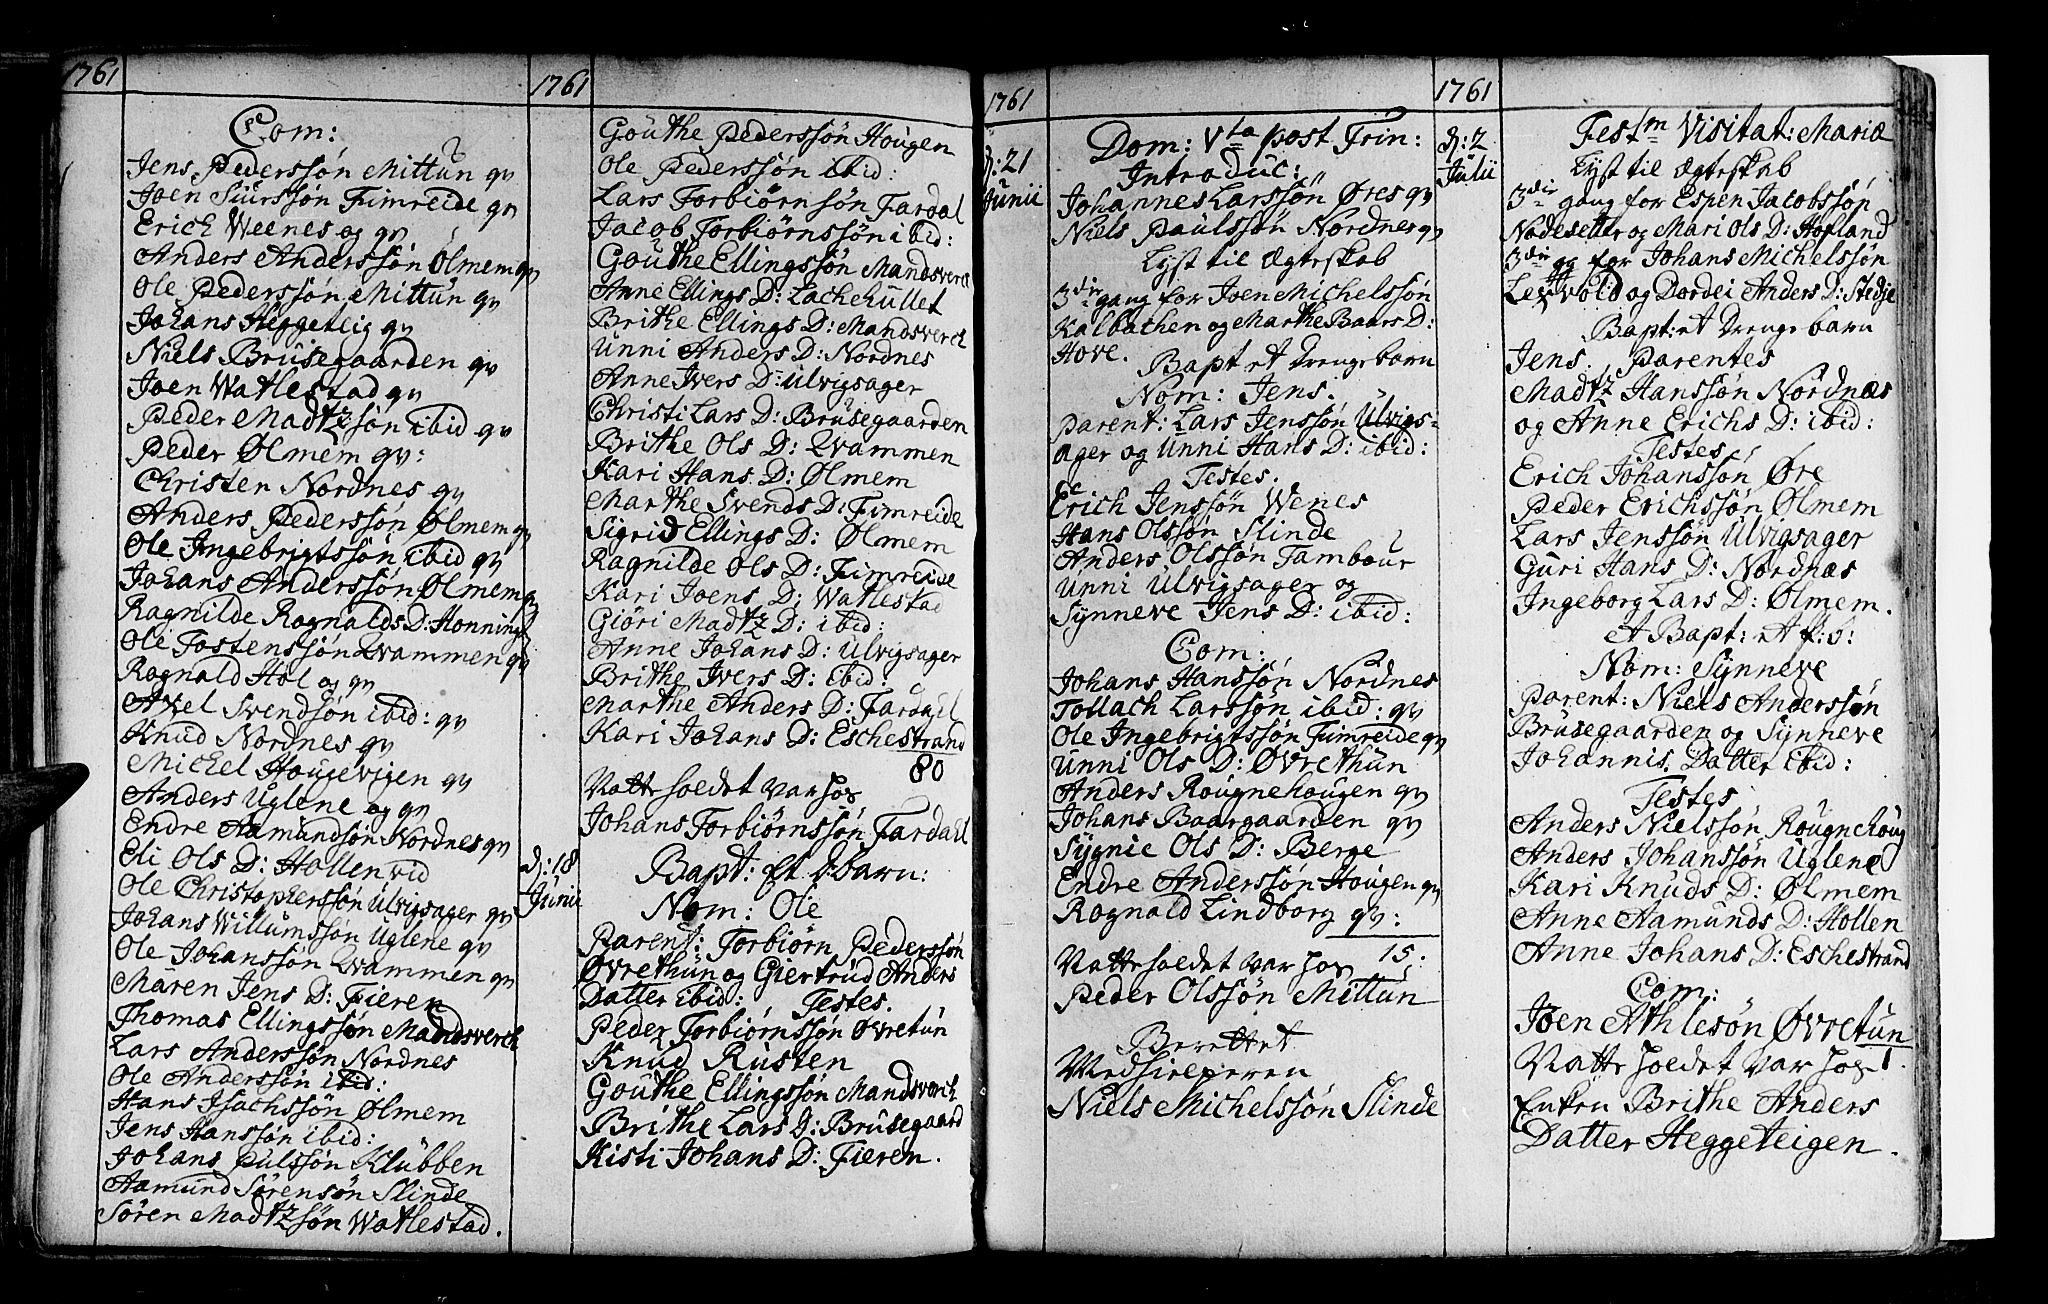 1761
Com:
Jens Pederssøn Mittun qv
Joen Siurssøn Fimreide qv
Erich Weenes og qv
Anders Anderssøn Ølmem qv
Ole Pederssøn Mittun qv
Johans Heggeteig qv
Niels Brusegaarden qv
Joen Watlestad qv
Peder Madtzsøn ibid qv
Peder Ølmem qv:
Christen Nordnes qv
Anders Pederssøn Ølmem qv
Ole Ingebrigtssøn ibid qv
Johans Anderssøn Ølmem qv
Ragnilde Ragnalds D: Honnings
Ole Tostenssøn Qvammen qv
Ragnald Hol og qv
Axel Svendsøn ibid: qv
Knud Nordnes qv
Michel Hougevigen qv
Anders Uglene og qv
Endre Aamundsøn Nordnes qv
Eli Ols D: Hollen vid
Ole Christophersøn Ulvigsager qv
Johans Willumssøn Uglene qv
Ole Johanssøn Qvammen qv
Maren Jens D: Fieren
Thomas Ellingssøn Mandsverck
Lars Anderssøn Nordnes
Ole Anderssøn ibid:
Hans Isachssøn Ølmem
Jens Hanssøn ibid:
Johans Pulssøn Klubben
Aamund Sørensøn Slinde
Søren Madtzsøn Watlestad.
1761
Gouthe Pederssøn Hougen
Ole Pederssøn ibid:
Lars Torbiørnsøn Fardal
Jacob Torbiørnssøn ibid:
Gouthe Ellingssøn Mandsverck
Anne Ellings D: Lachehullet
Brithe Ellings D: Mandsverck
Unni Anders D: Nordnes
Anne Ivers D: Ulvigsager
Christi Lars D: Brusegaarden
Brithe Ols D: Qvammen
Kari Hans D: Ølmem
Marthe Svends D: Fimreide
Sigrid Ellings D: Ølmem
Ragnilde Ols D: Fimreide
Kari Joens D: Watlestad
Giøri Madtz D: ibid:
Anne Johans D: Ulvigsager
Brithe Ivers D: ibid:
Marthe Anders D: Fardahl
Kari Johans D: Eschestrand
80
Natte holdet var hos
Johans Torbiørnssøn Fardahl
d: 18 Junii
Bapt: et Dbarn:
Nom: Ole
Parent: Torbiørn Pederssøn
Øvrethun og Giertrud Anders
Datter ibid: Testes.
Peder Torbiørnssøn Øvretun
Knud Rusten
Gouthe Ellingssøn Mandsverck
Brithe Lars D: Brusegaard
Kisti Johans D: Fieren.
1761
d: 21 Junii
Dom: Vta post Trin:
Introduc:
Johannes Larssøn Øres qv
Niels Paulssøn Nordnes qv
Lyst til Ægteskab
3die gang for Joen Michelssøn
Kalbachen og Marthe Baars D:
Hove. Bapt et Drengebarn
Nom: Jens.
Parent: Lars Jenssøn Ulvigs-
ager og Unni Hans D: ibid:
Testes.
Erich Jenssøn Wenes
Hans Olssøn Slinde
Anders Olssøn Tambour
Unni Ulvigsager og
Synneve Jens D: ibid:
Com:
Johans Hanssøn Nordnes
Tollach Larssøn ibid: qv
Ole Ingebrigtssøn Fimreide qv
Unni Ols D: Øvrethun
Anders Rougnehougen qv
Johans Baargaarden qv
Sygnie Ols D: Berge
Endre Anderssøn Hougen qv
Ragnald Lindborg qv:
15:
Natte holdet var hos
Peder Olssøn Mittun
Berettet
Medhielperen
Niels Michelssøn Slinde
1761
d: 2 Julii
Festm Visitat: Mariæ
Lyst til Ægteskab
3die gang for Espen Jacobssøn
Nadesetter og Mari Ols D: Hofland
3die gg for Johans Michelssøn
og Dordei Anders D: Stedje
Bapt: et Drengebarn
Jens. Parentes
Madtz Hanssøn Nordnæs
og Anne Erichs D: ibid:
Testes
Erich Johanssøn Øre
Peder Erichssøn Ølmem
Lars Jenssøn Ulvigsager
Guri Hans D: Nordnæs
Ingeborg Lars D: Ølmem.
et Bapt: et f: b:
Nom: Synneve
Parent: Niels Anderssøn
Brusegaarden og Synneve
Johannis Datter ibid:
Testes
Anders Nielssøn Rougnehoug
Anders Johanssøn Uglene
Kari Knuds D: Ølmem
Anne Aamunds D: Hollen
Anne Johans D: Eschestrand
Com:
Joen Athlesøn Øvretun
1.
Natte holdet var hos
Enken Brithe Anders
Datter Heggeteigen.